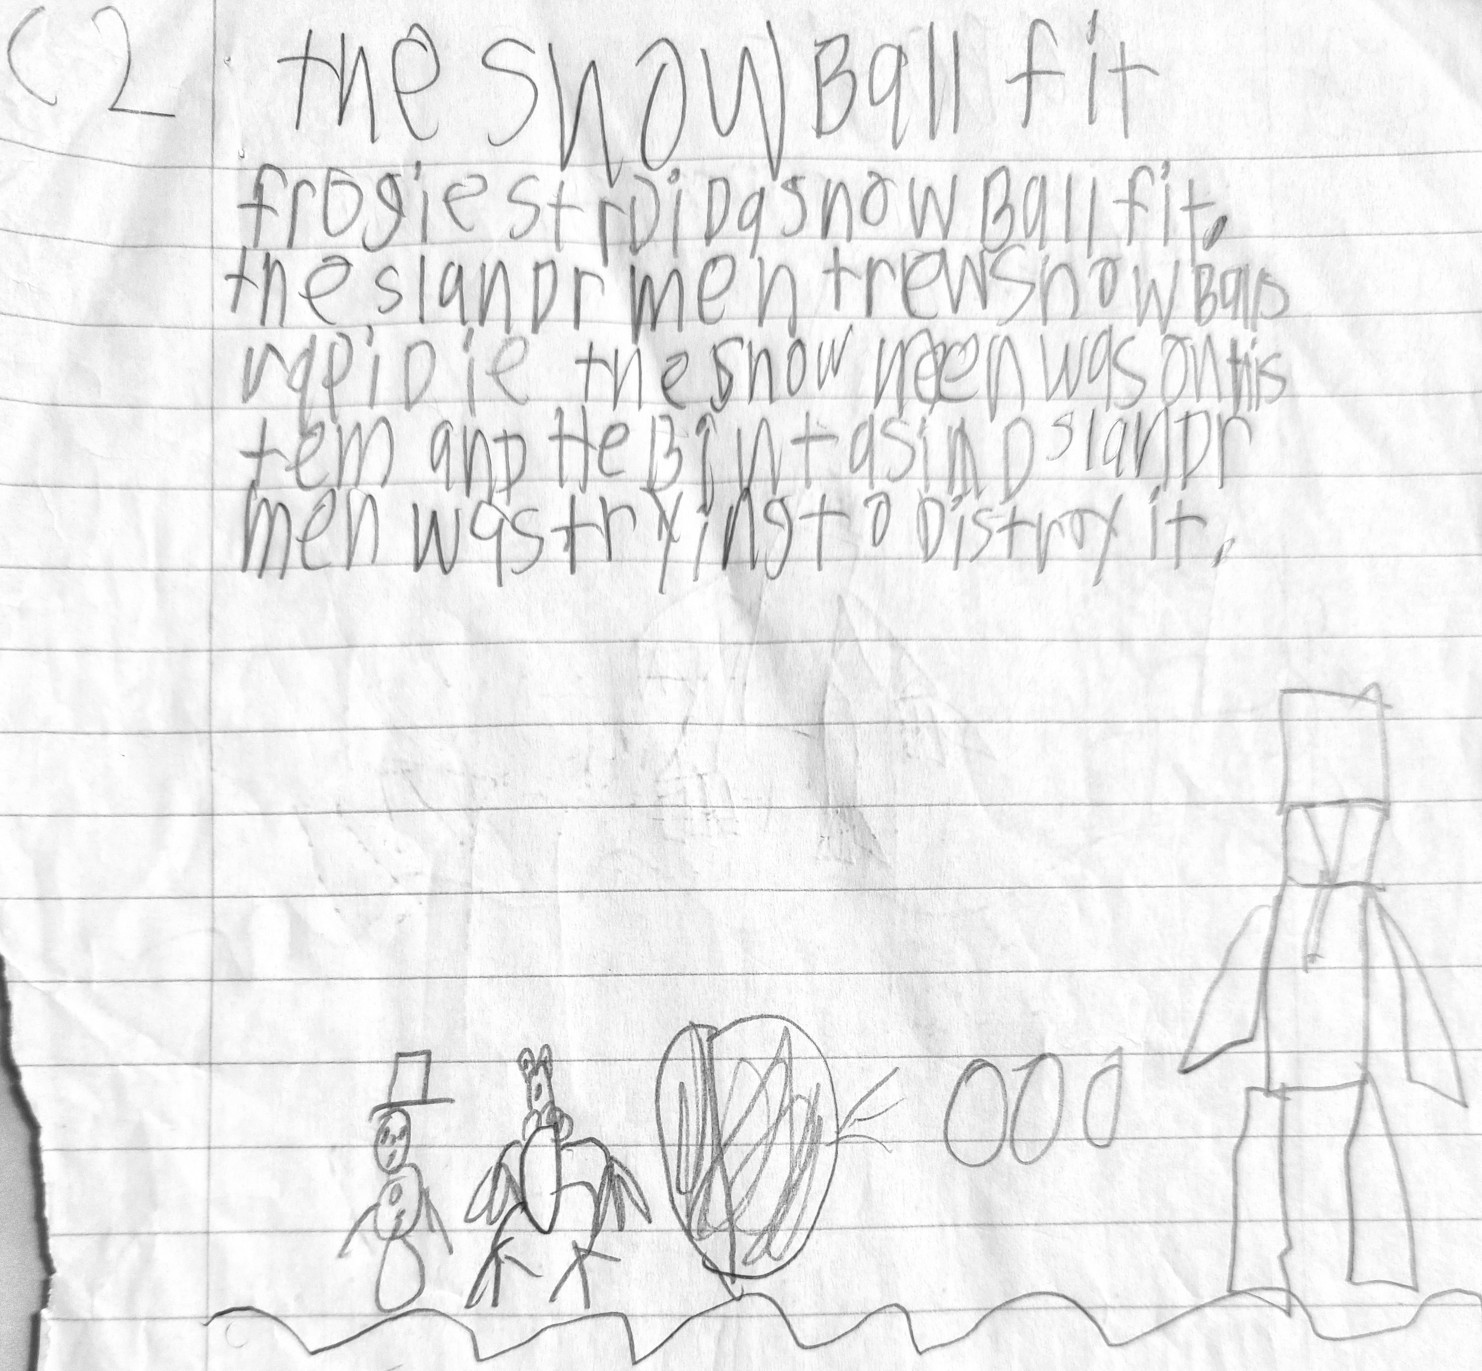 C2 the snow Ball fit
frogie strDiDa snow Ball fit.
the slanDr men trew snow Balls
rapiD ie the snow meen was on his
tem anD He Bint asinD slanDr
men was trying to Distroy it.